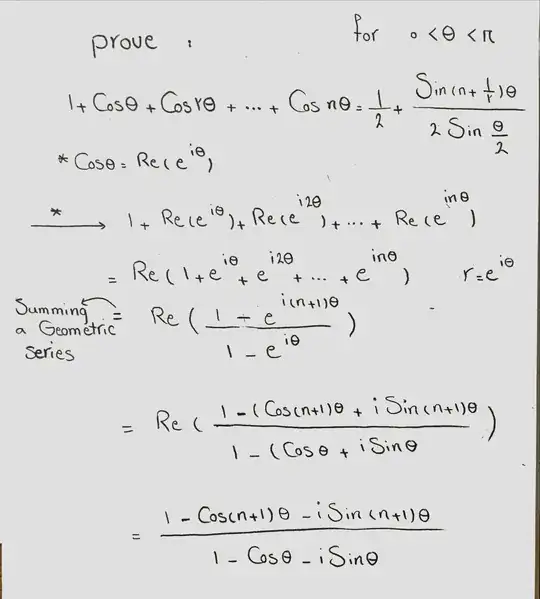 prove : for 0 < θ < π
1 + Cosθ + Cos2θ + ... + Cos nθ = 1/2 + Sin(n + 1/2)θ / 2 Sin θ/2
* Cosθ = Re(e^iθ)
* → 1 + Re(e^iθ) + Re(e^i2θ) + ... + Re(e^inθ)
= Re(1 + e^iθ + e^i2θ + ... + e^inθ) r = e^iθ
Summing a Geometric series = Re( 1 - e^i(n+1)θ / 1 - e^iθ )
= Re( 1 - (Cos(n+1)θ + i Sin(n+1)θ / 1 - (Cosθ + i Sinθ )
= 1 - Cos(n+1)θ - i Sin(n+1)θ / 1 - Cosθ - i Sinθ